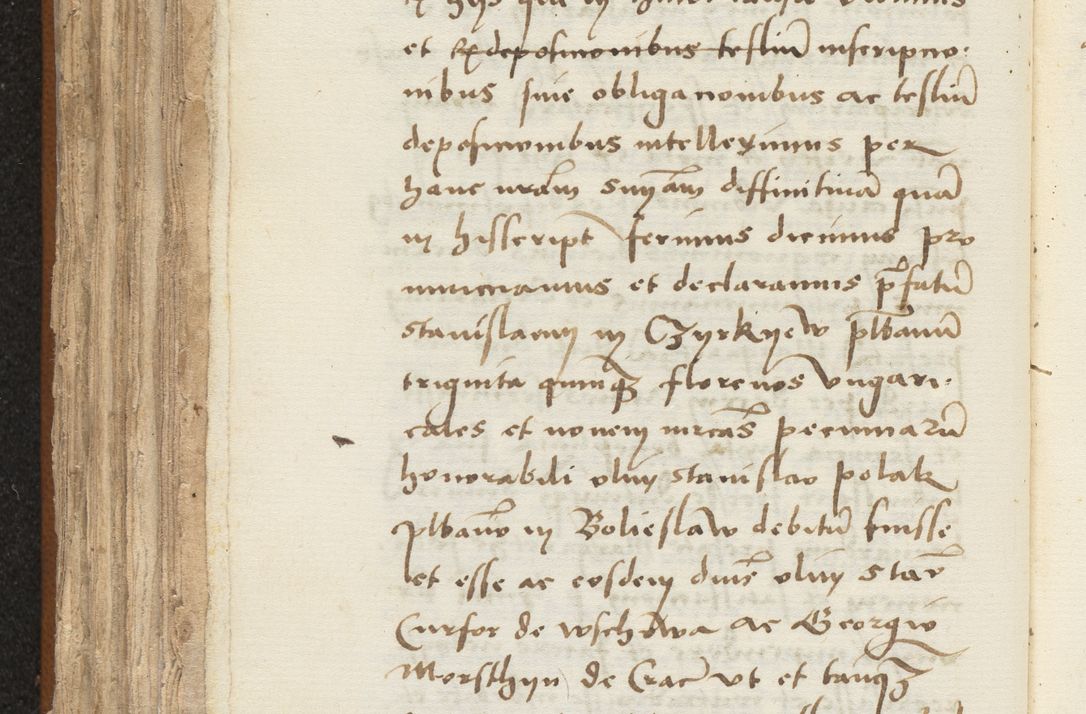 et ex deposicionibus testiu͞ inscripcio⸗
nibus siue obligacionibus ac testiu͞
deposicionibus intelleximus per
hanc nr͞am sn͞iam diffinitiua͞ qua͞
in hijsscript͞ ferimus dicimus pro
nunciamus et declaramus p͞fatu͞
stanislaum in Czyrkyew pl͞banu͞
triginta quinq3 florenos vngari⸗
cales et nonem mrcas͞ pecuniaru͞
honorabili olim stanislao polak
pl͞bano in Bolieslaw debitu͞ fuisse
et esse ac eosdem dnis͞ olim stan͞
Cursor de wschowa ac Georgio
Morsthyn de Crac͞ vt et tanq3